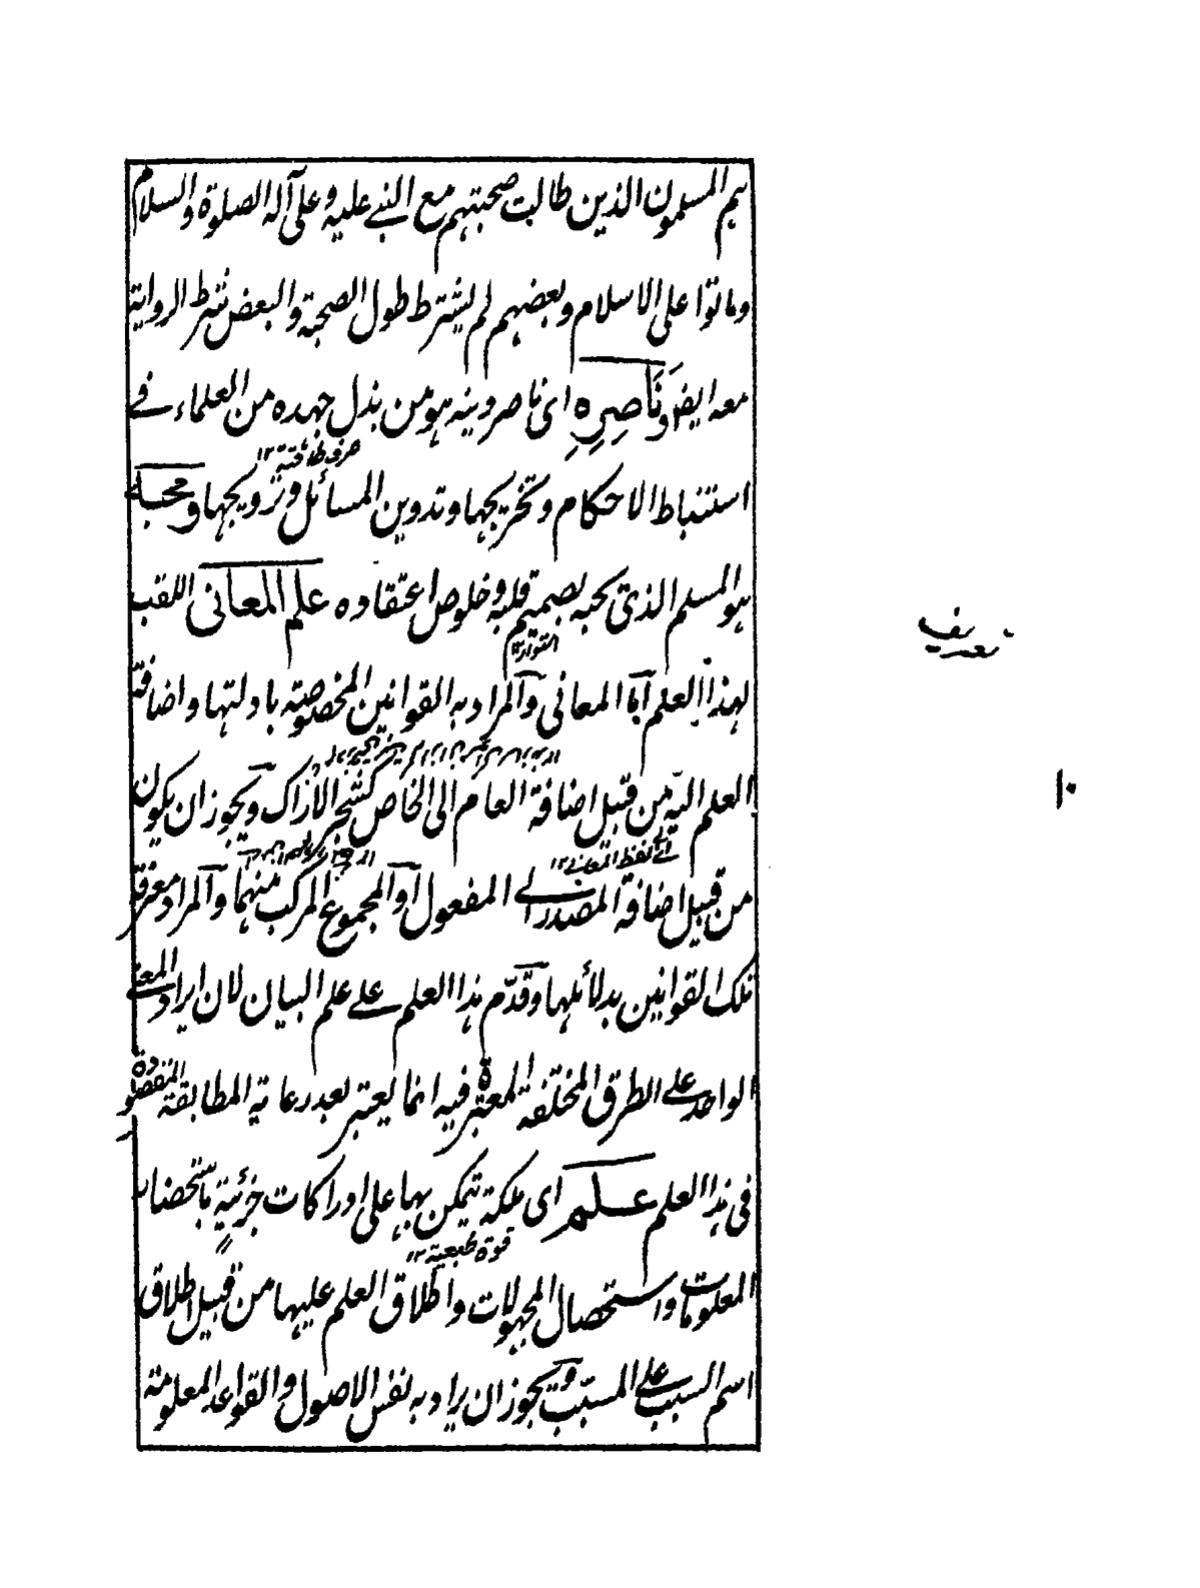 هم المسلمون الذين طالت صحبتهم مع النبي عليه وعلى آله الصلوة والسلام
وماتوا على الاسلام وبعضهم لم يشترط طول الصحبة والبعض شرط الرواية
معه ايضا وَنَاصِرِيهِ اى ناصر دينه هو من بذل جهده من العلماء فى
صرف طاقته ١٢
استنباط الاحكام وتخريجها وتدوين المسائل وترويجها ومحبيه
هو المسلم الذى يحبه بصميم قلبه وخلوص اعتقاده علم المعانى اللقب
لهذا العلم اما المعانى والمراد به القوانين المخصوصة بادلتها واضافة
العلم اليه من قبيل اضافة العام الى الخاص كشجر الاراك ويجوز ان يكون
اى لفظ المعانى ١٢
من قبيل اضافة المصدر الى المفعول او المجموع المركب منهما والمراد معرفة
تلك القوانين بدلائلها وقدّم هذا العلم على علم البيان لان ايراد المعنى
الواحد على الطرق المختلفة المعتبرة فيه انما يعتبر بعد رعاية المطابقة المقصودة
فى هذا العلم علم اى ملكة يتمكن بها على ادراكات جزئيةٍ باستحضار
قوة طبعية ١٢
المعلومات واستحصال المجهولات واطلاق العلم عليها من قبيل اطلاق
اسم السبب على المسبّب ويجوز ان يراد به نفس الاصول والقواعد المعلومة
تعريف
١٠